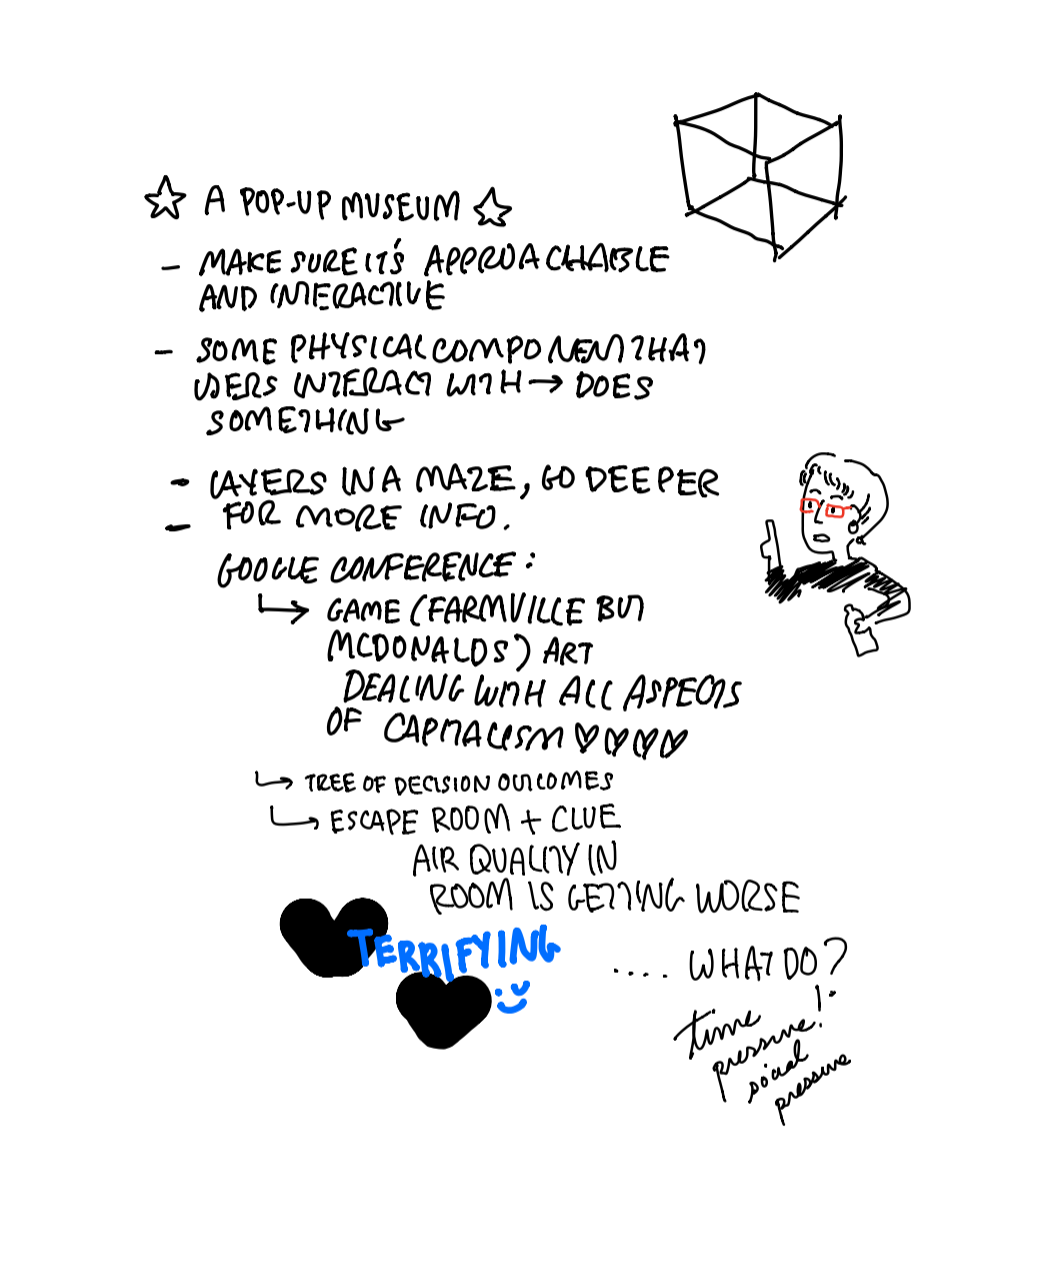 ☆ A POP-UP MUSEUM ☆
- MAKE SURE IT'S APPROACHABLE
AND INTERACTIVE
- SOME PHYSICAL COMPONENT THAT
USERS INTERACT WITH → DOES
SOMETHING
- LAYERS IN A MAZE, GO DEEPER
- FOR MORE INFO.
GOOGLE CONFERENCE:
↳ GAME (FARMVILLE BUT
MCDONALDS) ART
DEALING WITH ALL ASPECTS
OF CAPITALISM ♡♡♡♡
↳ TREE OF DECISION OUTCOMES
↳ ESCAPE ROOM + CLUE
AIR QUALITY IN
ROOM IS GETTING WORSE
TERRIFYING
.... WHAT DO?
time
pressure!
social
pressure